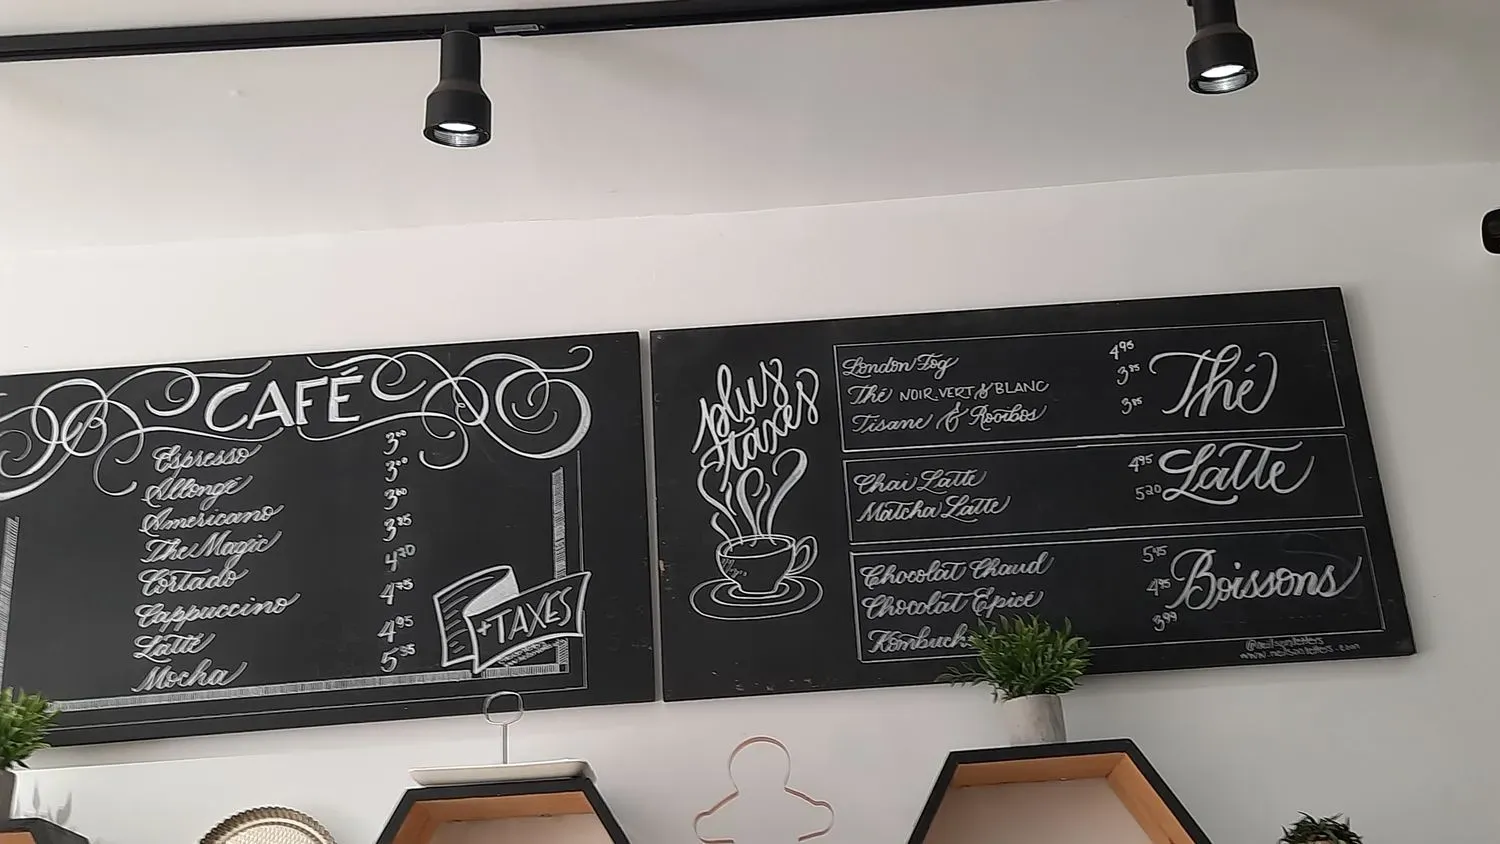 CAFÉ
Espresso 3.00
Allongé 3.00
Americano 3.00
The Magic 3.25
Cortado 4.20
Cappuccino 4.75
Latté 4.95
Mocha 5.35
+TAXES
plus
taxes
London Fog 4.95
Thé NOIR, VERT & BLANC 3.85
Tisane & Rooibos 3.85
Thé
Chai Latte 4.95
Matcha Latte 5.20
Latte
Chocolat Chaud 5.45
Chocolat Épicé 4.95
Kombuch 3.99
Boissons
@neilsonletters
www.neilsonletters.com